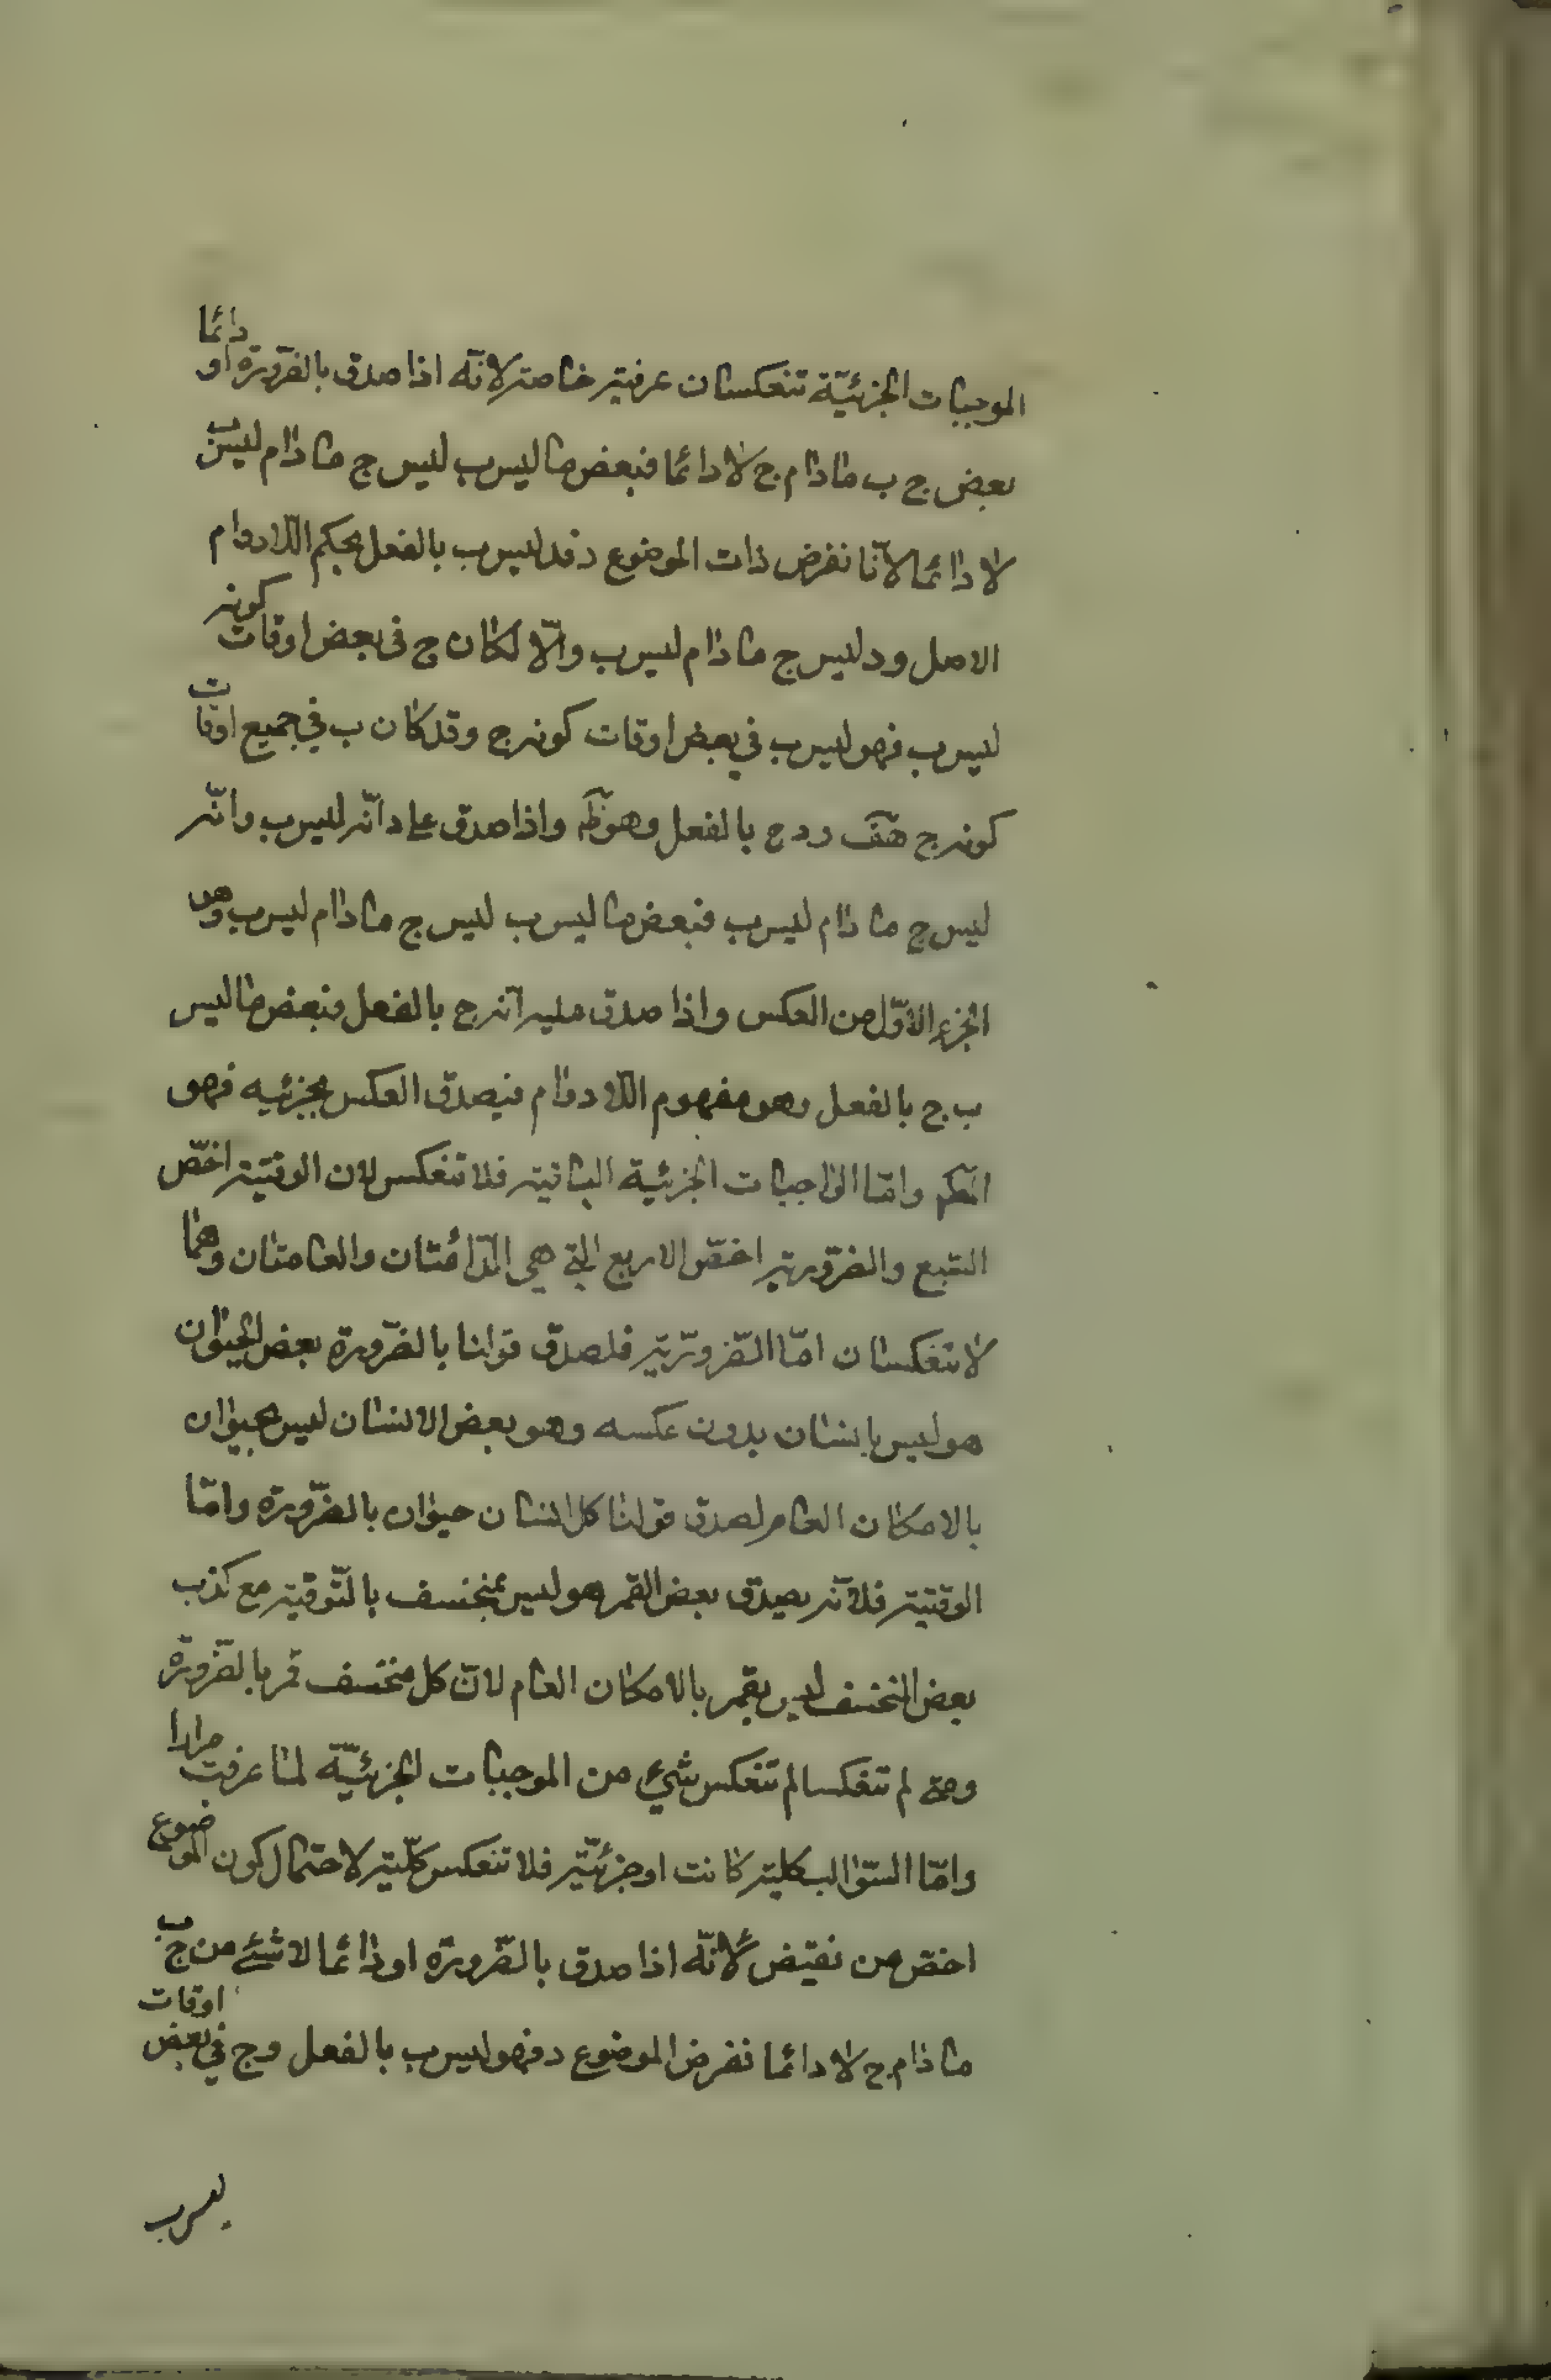 الموجبات الجزئيّة تنعكسان عرفيته خاصته لانّه اذا صدق بالضرورة او دائما
بعض ج ب ما دام ج لا دائما فبعض ما ليس ب ليس ج ما دام ليس ب
لا دائما لانّا نفرض ذات الموضوع د فد ليس ب بالفعل بحكم اللّا دوام
الاصل ود ليس ج ما دام ليس ب والّا لكان ج فى بعض اوقات كونه
ليس ب فهو ليس ب في بعض اوقات كونه ج وقد كان ب في جميع اوقات
كونه ج هف ود ج بالفعل وهو ظ واذا صدق على د انّه ليس ب وانّه
ليس ج ما دام ليس ب فبعض ما ليس ب ليس ج ما دام ليس ب وهو
الجزء الاوّل من العكس واذا صدق عليه انّه ج بالفعل فبعض ما ليس
ب ج بالفعل وهو مفهوم اللّا دوام فيصدق العكس بجزئيه فهو
المط وامّا الواجبات الجزئية الباقيته فلا تنعكس لان الوقتيته اخصّ
السّبع والضّروريته اخصّ الاربع التي هي الدّائمتان والعامتان وهما
لا تنعكسان امّا الضّروريّته فلصدق قولنا بالضّرورة بعض الحيوان
هو ليس بانسان بدون عكسه وهو بعض الانسان ليس بحيوان
بالامكان العام لصدق قولنا كل انسان حيوان بالضّرورة وامّا
الوقتيته فلانّه يصدق بعض القمر هو ليس بمنخسف بالتّوقيته مع كذب
بعض المنخسف ليس بقمر بالامكان العام لانّ كل منخسف قمر بالضّرورة
ومتى لم تنعكسا لم تنعكس شيء من الموجبات الجزئيّة لما عرفت مرارا
وامّا السّوالب كليته كانت او جزئيّته فلا تنعكس كلّيته لاحتمال كون الموضوع
اخصّ من نقيض لانّه اذا صدق بالضّرورة او دائما لا شئ من ج ب
ما دام ج لا دائما نفرض الموضوع د فهو ليس ب بالفعل وج في بعض اوقات
ليس ب